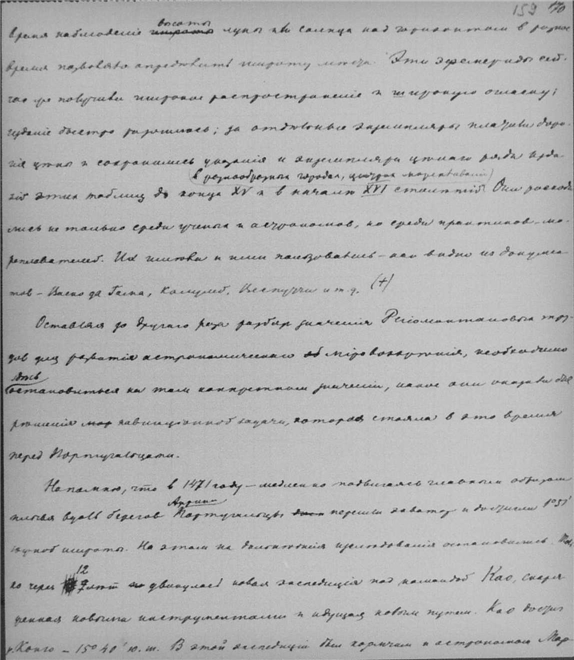 159 70
высоты
время наблюденiе широты луны или солнца над горизонтом в разное
время позволяя определить широту места. Эти эфемериды сей-
час же получили широкое распространенiе и широкую огласку;
изданiе быстро разошлось; за отдельные экземпляры платили доро-
гiя цены и сохранились указанiя и экземпляры целого ряда изда-
в разнообразных городах,
нiй этих таблиц до конца XV и в начале XVI столетiй. Они расхо-
лись не только среди ученых и астрономов, но среди практиков-мо-
реплавателей. Их имели и ими пользовались - как видно из докумен-
тов - Васко да Гама, Колумб, Веспуччи и т.д. (+)
Оставляя до другого раза разбор значенiя Региомонтановых тру-
дов для развитiя астрономического мiровоззренiя, необходимо
здесь
остановиться на том конкретном значенiи, какое они оказали для
решенiя навигацiонной задачи, которая стояла в это время
перед Португальцами.
Напомню, что в 1471 году - медленно подвигаясь главным образом
Африки
плывя вдоль берегов Португальцы перешли экватор и достигли 1°51'
южной широты. На этом на изследованiя остановились.
12
ко через лет двинулась новая экспедицiя под командой Као, снаря-
женная новыми инструментами и идущая новым путем. Као достиг
Конго - 15°40' ю.ш. В этой экспедицiи был и астроном Мар-